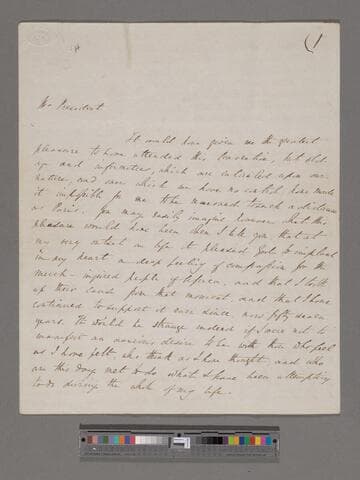 (1
Mr President
It would have given me the greatest
pleasure to have attended this Convention, but old-
age and infirmities, which are entailed upon our
nature, and over which we have no control have made
it impossible for me to travel to such a distance
as Paris. You may easily imagine however what the
pleasure would have been when I tell you that at
my very outset in life it pleased God to implant
in my heart a deep feeling of compassion for the
much-injured people of Africa, and that I took
up their cause from that moment, and that I have
continued to support it ever since, now fifty seven
years. It would be strange indeed if I were not to
manifest an anxious desire to be with those who feel
as I have felt who think as I have thought and who
are this day met to do what I have been attempting
to do during the whole of my life.